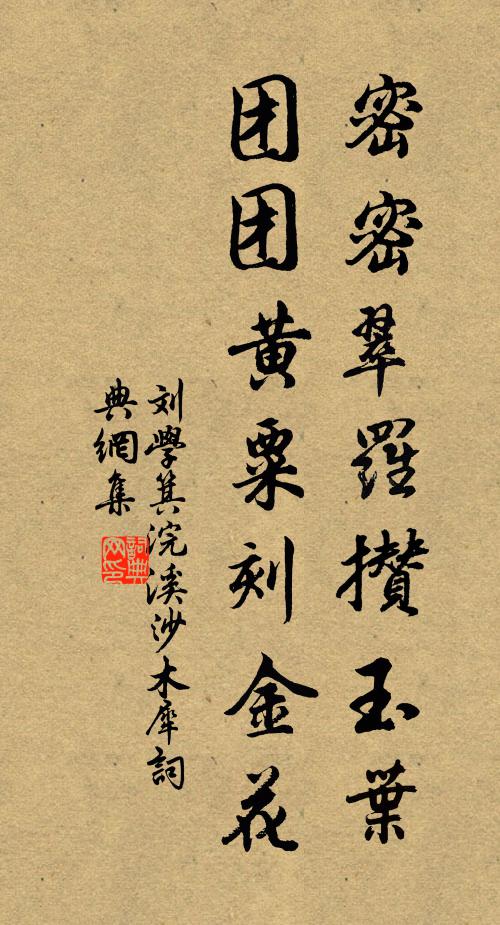 密密翠羅攢玉葉
团团黄粟刻金花
刘學箕浣溪沙木犀詞
典網集
詞典网印